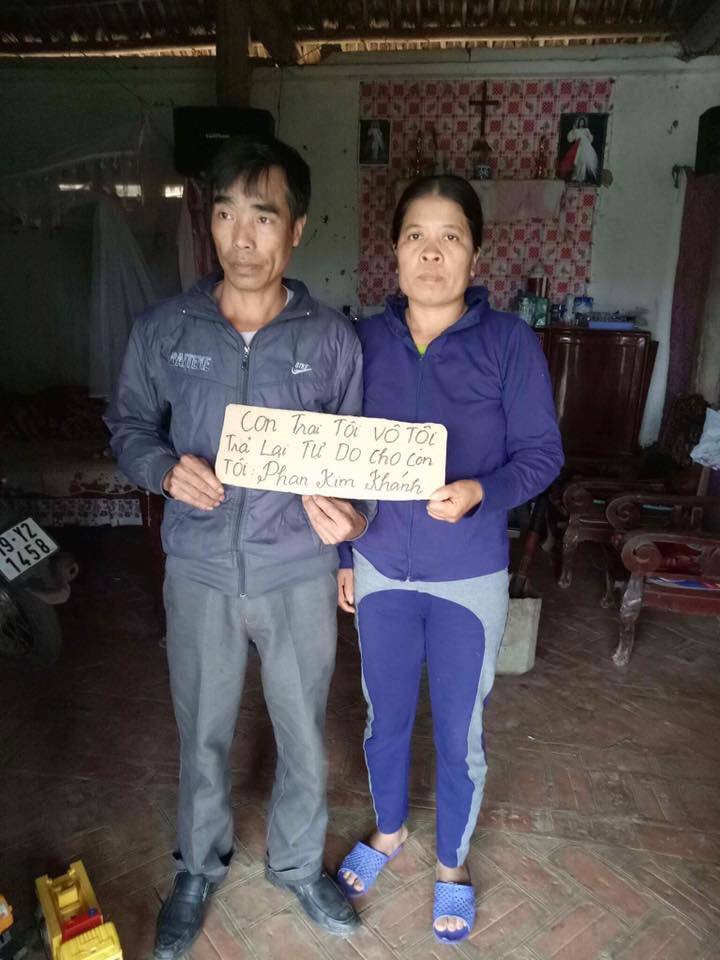 Con Trai Tôi VÔ TỘI
Trả Lại Tự Do cho con
Tôi: Phan Kim Khánh
19-Y2
1458